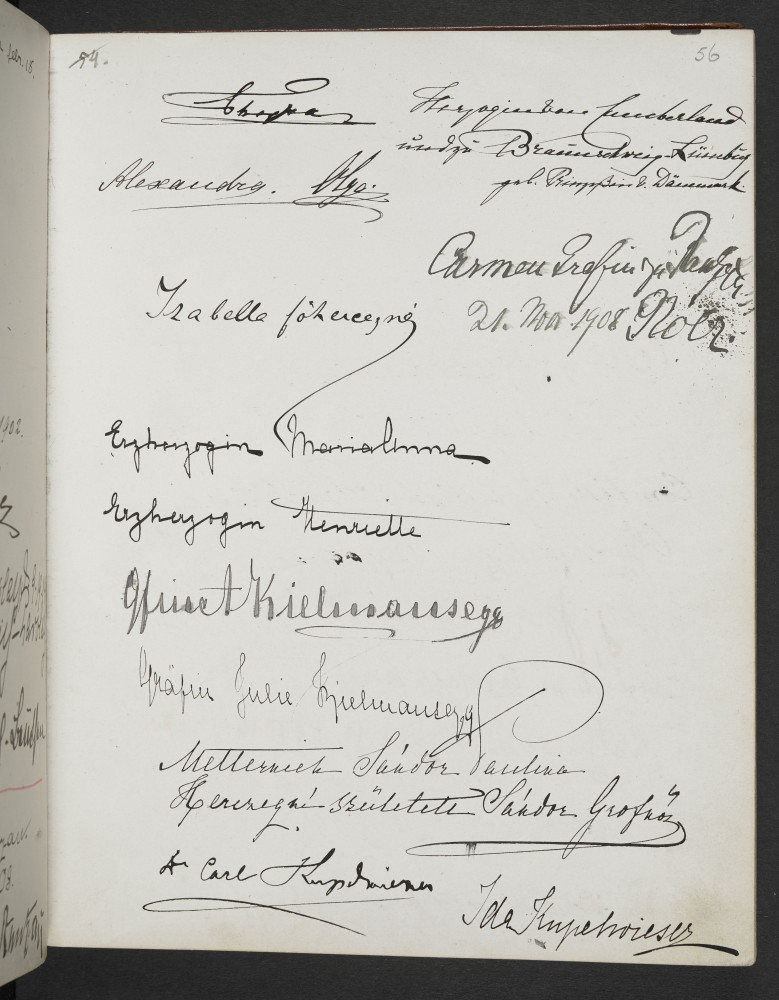 54.
56
Thyra
Herzogin von Cumberland
und zu Braunschweig-Lüneburg
geb. Prinzessin v. Dänemark.
Alexandra. Olga.
Carmen Gräfin zu
21. Nov 1908
Izabella főherczegnő
Erzherzogin Maria Anna
Erzherzogin Henriette
Kielmansegg
Gräfin Julie Kielmansegg
Metternich Sándor Paulina
Herczegné született Sándor Grofnö
Dr Carl Kupelwieser
Ida Kupelwieser